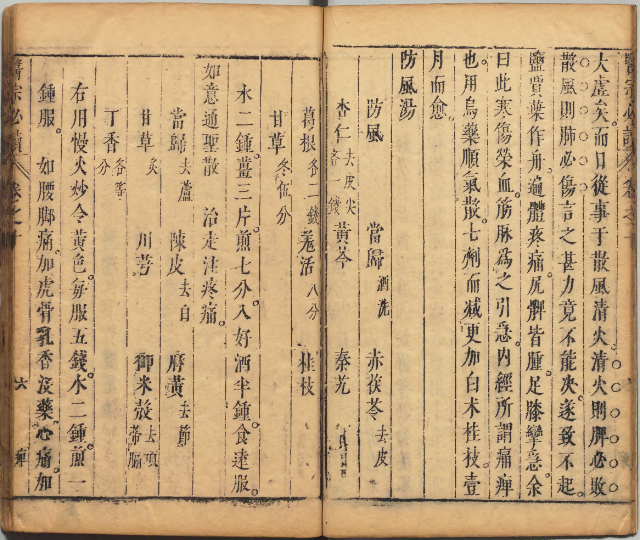 大虛矣而日從事于散風清火清火則脾必敗
散風則肺必傷言之甚力竟不能決遂致不起
鹽賈葉作舟遍體疼痛尻髀皆腫足膝攣急余
曰此寒傷榮血筋脉為之引急內經所謂痛痺
也用烏藥順氣散七劑而減更加白术桂枝壹
月而愈
防風湯
防風 當歸酒洗 赤茯苓去皮
杏仁去皮尖各一錢 黃芩 秦艽
葛根各二錢 羗活八分 桂枝
甘草各伍分
水二鍾薑三片煎七分入好酒半鍾食遠服
如意通聖散 治走注疼痛
當歸去蘆 陳皮去白 麻黃去節
甘草炙 川芎 御米殼去頂蒂膈
丁香各等分
右用慢火炒令黃色每服五錢水二鍾煎一
鍾服 如腰脚痛加虎骨乳香沒藥心痛加
醫宗必讀 卷之十 六 痺